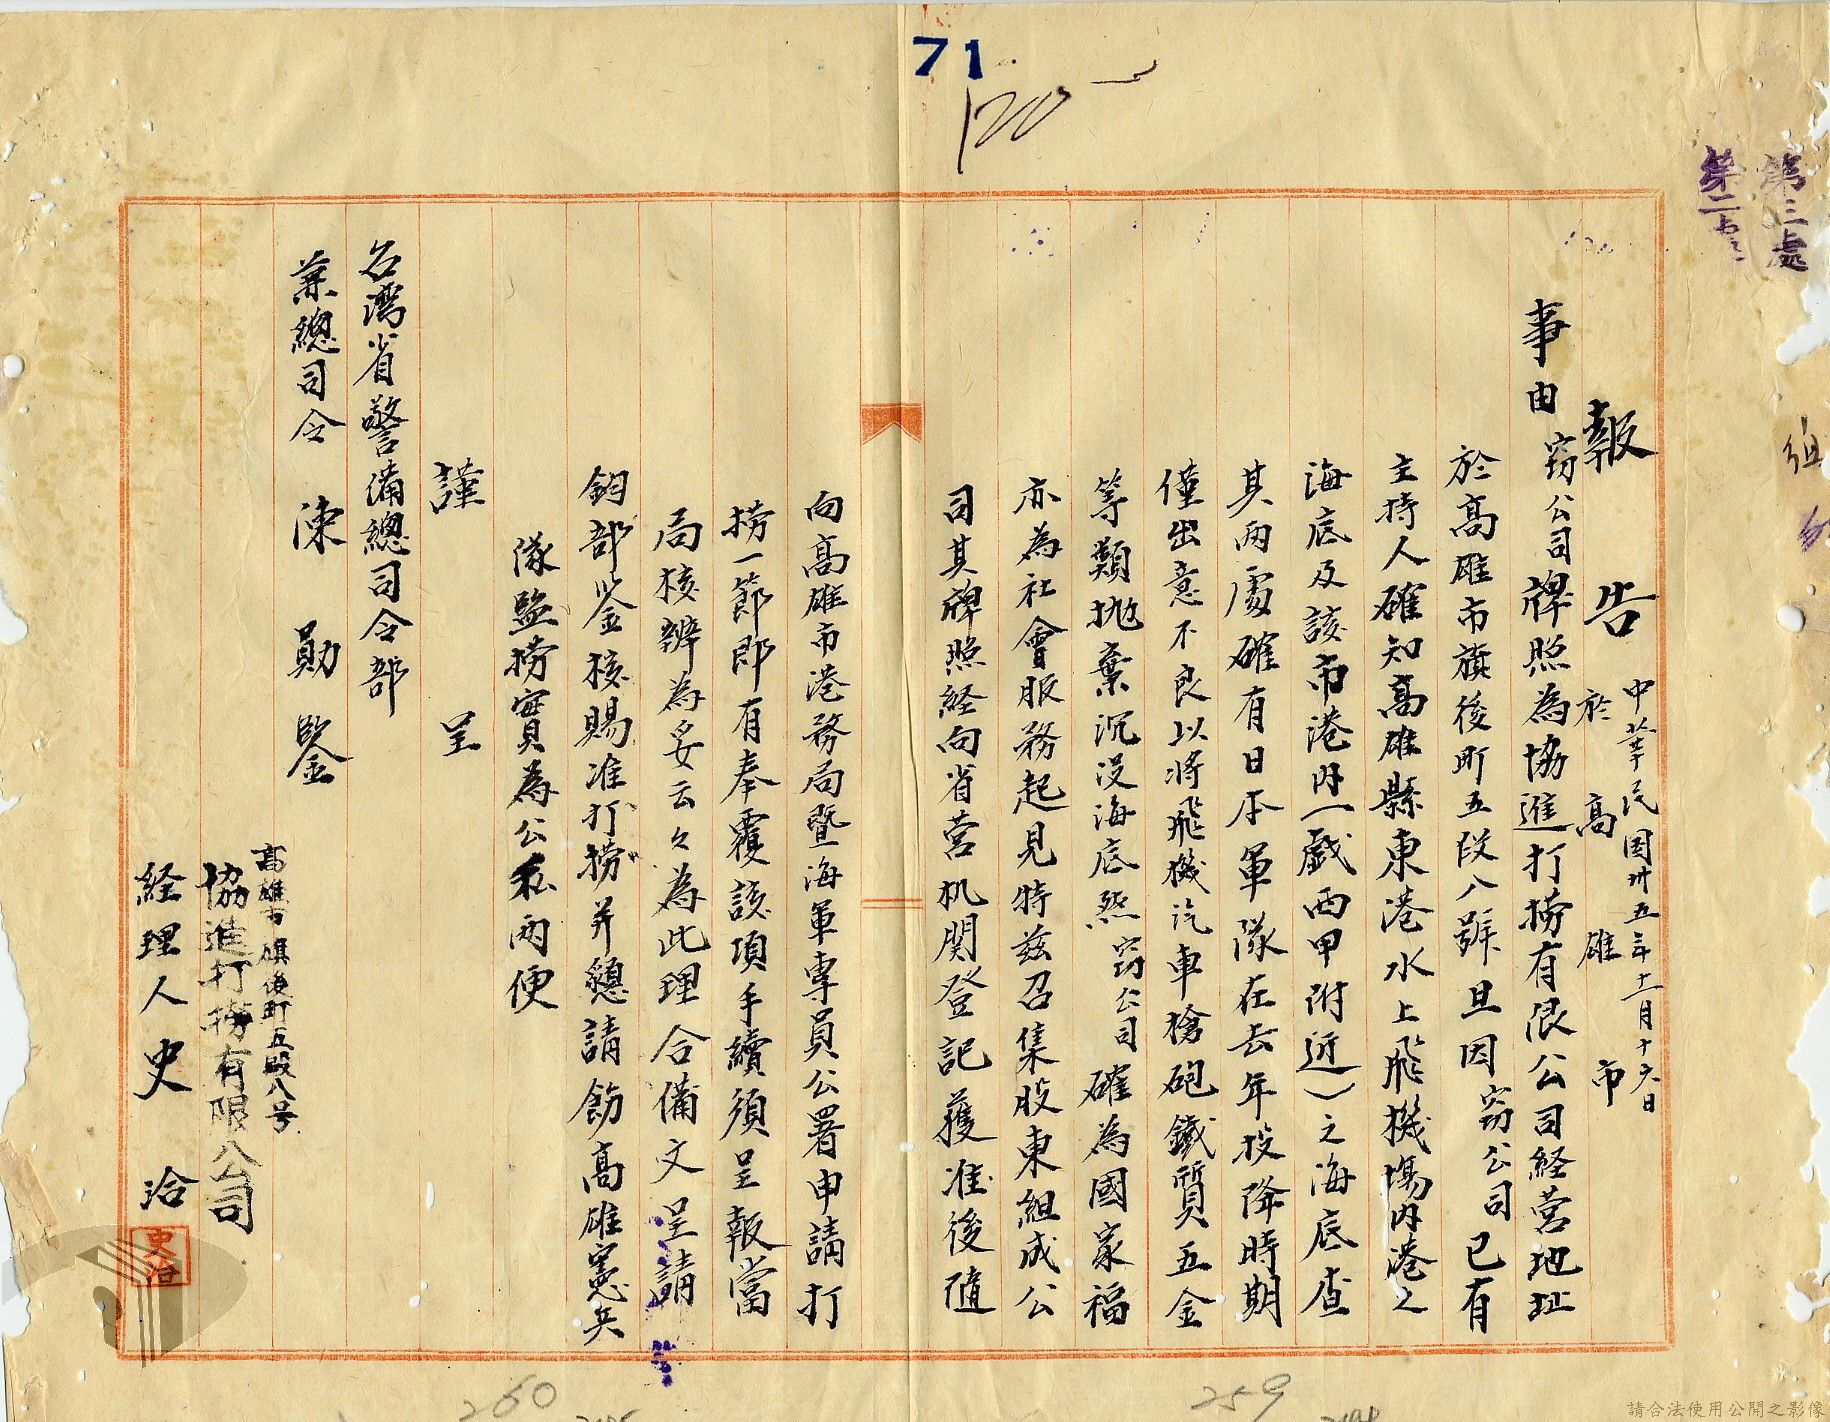 71
120
第三處
第二
報告 於高雄市
中華民国卅五年十一月十六日
事由 窃公司牌照為協進打撈有限公司経营地址
於高雄市旗後町五段八號旦因窃公司已有
主持人確知高雄縣東港水上飛機場内港之
海底及該市港内(戲西甲附近)之海底查
其両處確有日本軍隊在去年投降時期
僅出意不良以将飛機汽車槍砲鐵質五金
等類拋棄沉没海底然窃公司確為國家福
亦為社會服務起見特兹召集股東組成公
司其牌照経向省营机関登記獲准後隨
向高雄市港務局暨海軍專員公署申請打
撈一節即有奉覆該項手續須呈報當
局核辦為妥云々為此理合備文呈請
鈞部鉴核賜准打撈并懇請飭高雄憲兵
隊監撈實為公私両便
謹呈
名湾省警備總司令部
兼總司令 陳 勛 鑒
高雄市旗後町五段八号
協進打撈有限公司
経理人史洽
史洽
260
259
請合法使用公開之影像